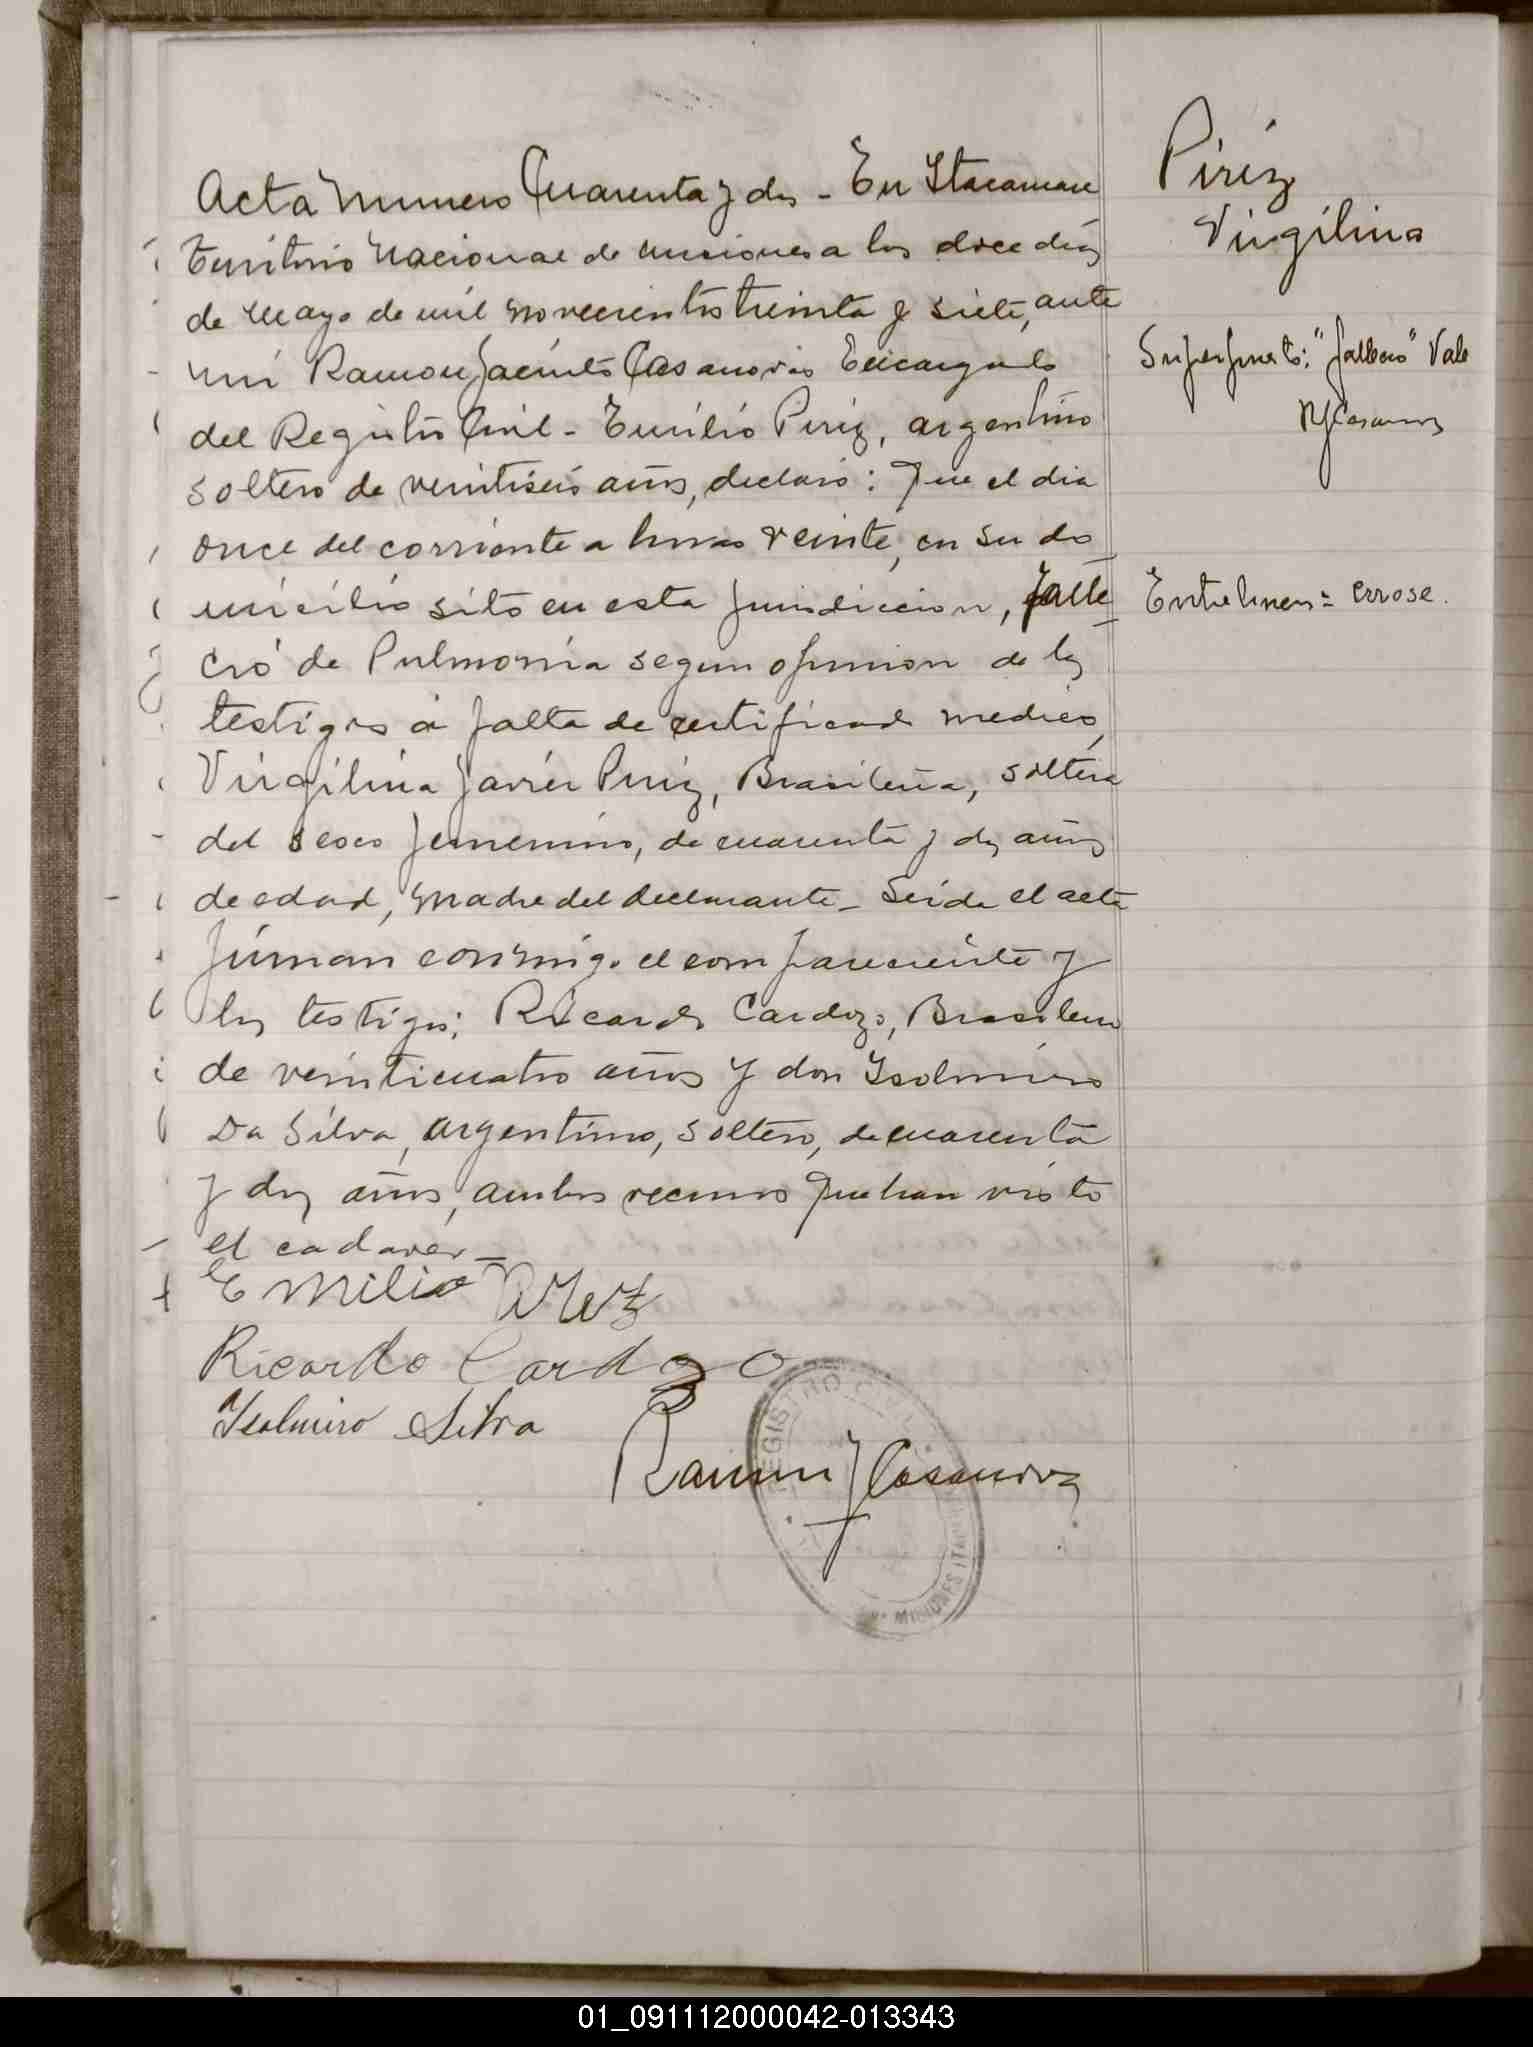 Acta Numero Cuarenta y dos - En Itacaruare
Territorio Nacional de Misiones a los doce dias
de Mayo de mil novecientos treinta y siete, ante
mi Ramon Jacinto Casanova Encargado
del Registro Civil - Emilio Piriz, argentino
soltero de veintiseis años, declaró: Que el dia
once del corriente a horas veinte, en su do
micilio sito en esta Jurisdiccion, falle
ció de Pulmonia segun opinion de los
testigos á falta de certificado medico,
Virgilina Javier Piriz, Brasileña, soltera
del sexo femenino, de cuarenta y dos años
de edad, Madre del declarante - Leida el acta
firman conmigo el compareciente y
los testigos: Ricardo Cardozo, Brasilero
de veinticuatro años y don Isolmiro
Da Silva, Argentino, soltero, de cuarenta
y dos años, ambos vecinos que han visto
el cadaver -
Emilio Pirez
Ricardo Cardozo
Isolmiro Silva
Ramon J Casanova
REGISTRO CIVIL
MISIONES
Piriz
Virgilina
Superpuesto: "fallecio" Vale
RJCasanova
Entrelineas = errose.
01_091112000042-013343